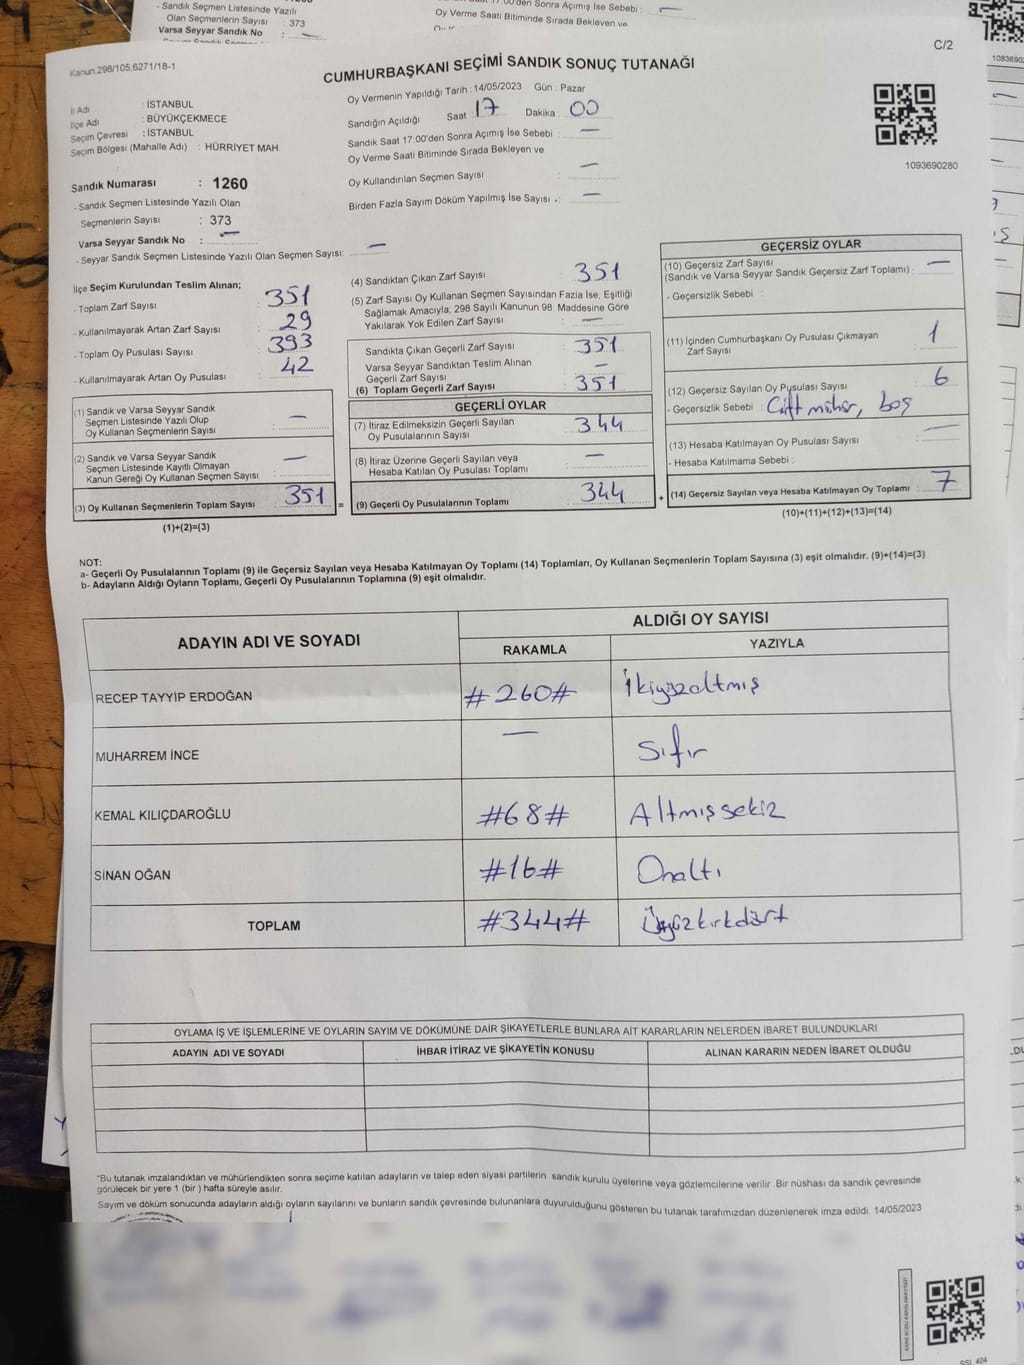 - Sandık Seçmen Listesinde Yazılı
Olan Seçmenlerin Sayısı : 373
Varsa Seyyar Sandık No : —
Oy Verme Saati Bitiminde Sırada Bekleyen ve
C/2
Kanun.298/105,6271/18-1
CUMHURBAŞKANI SEÇİMİ SANDIK SONUÇ TUTANAĞI
İl Adı : İSTANBUL
İlçe Adı : BÜYÜKÇEKMECE
Seçim Çevresi : İSTANBUL
Seçim Bölgesi (Mahalle Adı) : HÜRRİYET MAH.
Oy Vermenin Yapıldığı Tarih : 14/05/2023 Gün : Pazar
Sandığın Açıldığı Saat : 17 Dakika : 00
Sandık Saat 17:00'den Sonra Açımış İse Sebebi : —
Oy Verme Saati Bitiminde Sırada Bekleyen ve
Oy Kullandırılan Seçmen Sayısı : —
Birden Fazla Sayım Döküm Yapılmış İse Sayısı . : —
1093690280
Sandık Numarası : 1260
- Sandık Seçmen Listesinde Yazılı Olan
Seçmenlerin Sayısı : 373
Varsa Seyyar Sandık No : —
- Seyyar Sandık Seçmen Listesinde Yazılı Olan Seçmen Sayısı: —
İlçe Seçim Kurulundan Teslim Alınan;
- Toplam Zarf Sayısı : 351
- Kullanılmayarak Artan Zarf Sayısı : 29
- Toplam Oy Pusulası Sayısı : 393
- Kullanılmayarak Artan Oy Pusulası : 42
(1) Sandık ve Varsa Seyyar Sandık
Seçmen Listesinde Yazılı Olup
Oy Kullanan Seçmenlerin Sayısı : —
(2) Sandık ve Varsa Seyyar Sandık
Seçmen Listesinde Kayıtlı Olmayan
Kanun Gereği Oy Kullanan Seçmen Sayısı : —
(3) Oy Kullanan Seçmenlerin Toplam Sayısı : 351 =
(1)+(2)=(3)
(4) Sandıktan Çıkan Zarf Sayısı : 351
(5) Zarf Sayısı Oy Kullanan Seçmen Sayısından Fazla İse, Eşitliği
Sağlamak Amacıyla; 298 Sayılı Kanunun 98. Maddesine Göre
Yakılarak Yok Edilen Zarf Sayısı : —
Sandıkta Çıkan Geçerli Zarf Sayısı : 351
Varsa Seyyar Sandıktan Teslim Alınan
Geçerli Zarf Sayısı : —
(6) Toplam Geçerli Zarf Sayısı : 351
GEÇERLİ OYLAR
(7) İtiraz Edilmeksizin Geçerli Sayılan
Oy Pusulalarının Sayısı : 344
(8) İtiraz Üzerine Geçerli Sayılan veya
Hesaba Katılan Oy Pusulası Toplamı : —
(9) Geçerli Oy Pusulalarının Toplamı : 344 +
GEÇERSİZ OYLAR
(10) Geçersiz Zarf Sayısı
(Sandık ve Varsa Seyyar Sandık Geçersiz Zarf Toplamı) : —
- Geçersizlik Sebebi :
(11) İçinden Cumhurbaşkanı Oy Pusulası Çıkmayan
Zarf Sayısı : 1
(12) Geçersiz Sayılan Oy Pusulası Sayısı : 6
- Geçersizlik Sebebi : Çift mühür, boş
(13) Hesaba Katılmayan Oy Pusulası Sayısı : —
- Hesaba Katılmama Sebebi :
(14) Geçersiz Sayılan veya Hesaba Katılmayan Oy Toplamı : 7
(10)+(11)+(12)+(13)=(14)
NOT:
a- Geçerli Oy Pusulalarının Toplamı (9) ile Geçersiz Sayılan veya Hesaba Katılmayan Oy Toplamı (14) Toplamları, Oy Kullanan Seçmenlerin Toplam Sayısına (3) eşit olmalıdır. (9)+(14)=(3)
b- Adayların Aldığı Oyların Toplamı, Geçerli Oy Pusulalarının Toplamına (9) eşit olmalıdır.
ADAYIN ADI VE SOYADI
ALDIĞI OY SAYISI
RAKAMLA YAZIYLA
RECEP TAYYİP ERDOĞAN #260# İkiyüzaltmış
MUHARREM İNCE — Sıfır
KEMAL KILIÇDAROĞLU #68# Altmışsekiz
SİNAN OĞAN #16# Onaltı
TOPLAM #344# Üçyüzkırkdört
OYLAMA İŞ VE İŞLEMLERİNE VE OYLARIN SAYIM VE DÖKÜMÜNE DAİR ŞİKAYETLERLE BUNLARA AİT KARARLARIN NELERDEN İBARET BULUNDUKLARI
ADAYIN ADI VE SOYADI İHBAR İTİRAZ VE ŞİKAYETİN KONUSU ALINAN KARARIN NEDEN İBARET OLDUĞU
"Bu tutanak imzalandıktan ve mühürlendikten sonra seçime katılan adayların ve talep eden siyasi partilerin sandık kurulu üyelerine veya gözlemcilerine verilir. Bir nüshası da sandık çevresinde
görülecek bir yere 1 (bir ) hafta süreyle asılır.
Sayım ve döküm sonucunda adayların aldığı oyların sayılarını ve bunların sandık çevresinde bulunanlara duyurulduğunu gösteren bu tutanak tarafımızdan düzenlenerek imza edildi. 14/05/2023